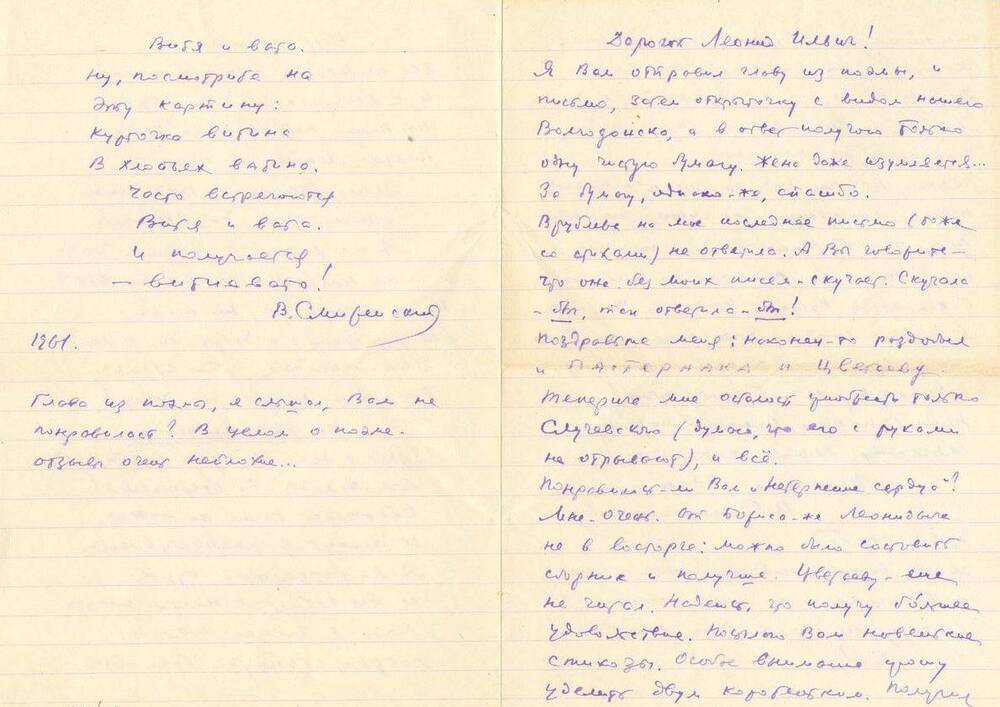 Витя и вата.
Ну, посмотрите на
Эту картину:
Курточка витина
В хлопьях ватина.
Часто встречаются
Витя и вата.
И получается
— витиевато!
В. Смиренский
1961.
Глава из поэмы, я слышал, Вам не
понравилась? В целом о поэме.
отзывы очень неплохие...
Дорогой Леонид Ильич!
Я Вам отправил главу из поэмы, и
письмо, затем открыточку с видом нашего
Волгодонска, а в ответ получаю только
одну чистую бумагу. Жена даже изумляется...
За бумагу, однако-же, спасибо.
Врублевс на мое последнее письмо (тоже
со стихами) не ответила. А Вы говорите —
что она без моих писем - скучает. Скучала
- бы, так ответила - бы!
Поздравьте меня: наконец-то раздобыл
и Пастернака и Цветаеву.
Теперича мне осталось приобресть только
Случевского (думаю, что его с руками
не отрывают), и всё.
Понравилось-ли Вам „Нетерпение сердца"?
Мне - очень. От Бориса-же Леонидыча
не в восторге: можно было составить
сборник и получше. Цветаеву - еще
не читал. Надеюсь, что получу большее
удовольствие. Посылаю Вам новейшие
стихозы. Особое внимание прошу
уделить двум коротышкам. Получил